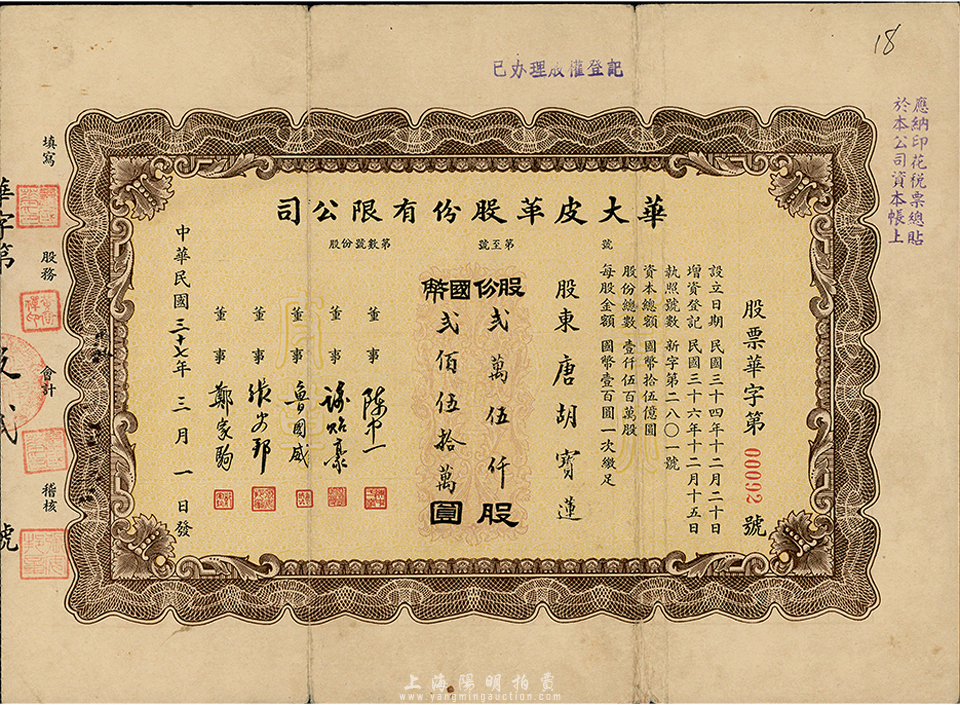 18
已办理股權登記
應納印花税票總貼
於本公司資本帳上
華大皮革股份有限公司
號
第至號
第數號份股
股票華字第 00092 號
設立日期 民國三十四年十二月二十日
增資登記 民國三十六年十二月十五日
執照號數 新字第二八〇一號
資本總額 國幣拾伍億圓
股份總數 壹仟伍百萬股
每股金額 國幣壹百圓一次繳足
股東 唐胡寶蓮
股份 弐萬伍仟股
國幣 弐佰伍拾萬圓
董事 陳中一
董事
董事 魯國威
董事 張安邦
董事 鄭家駒
中華民國三十七年三月一日發
填寫
股務
會計
稽核
華字第
號
上海陽明拍賣
www.yangmingauction.com